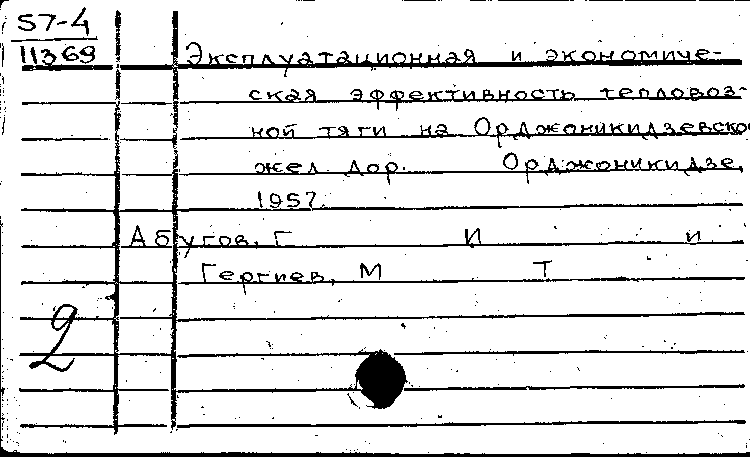 57-4
11369
Эксплуатационная и экономиче-
ская эффективность тепловоз-
ной тяги на Орджоникидзевско
жел дор. Орджоникидзе,
1957.
Абугов, Г И и
Гергиев, М Т
2